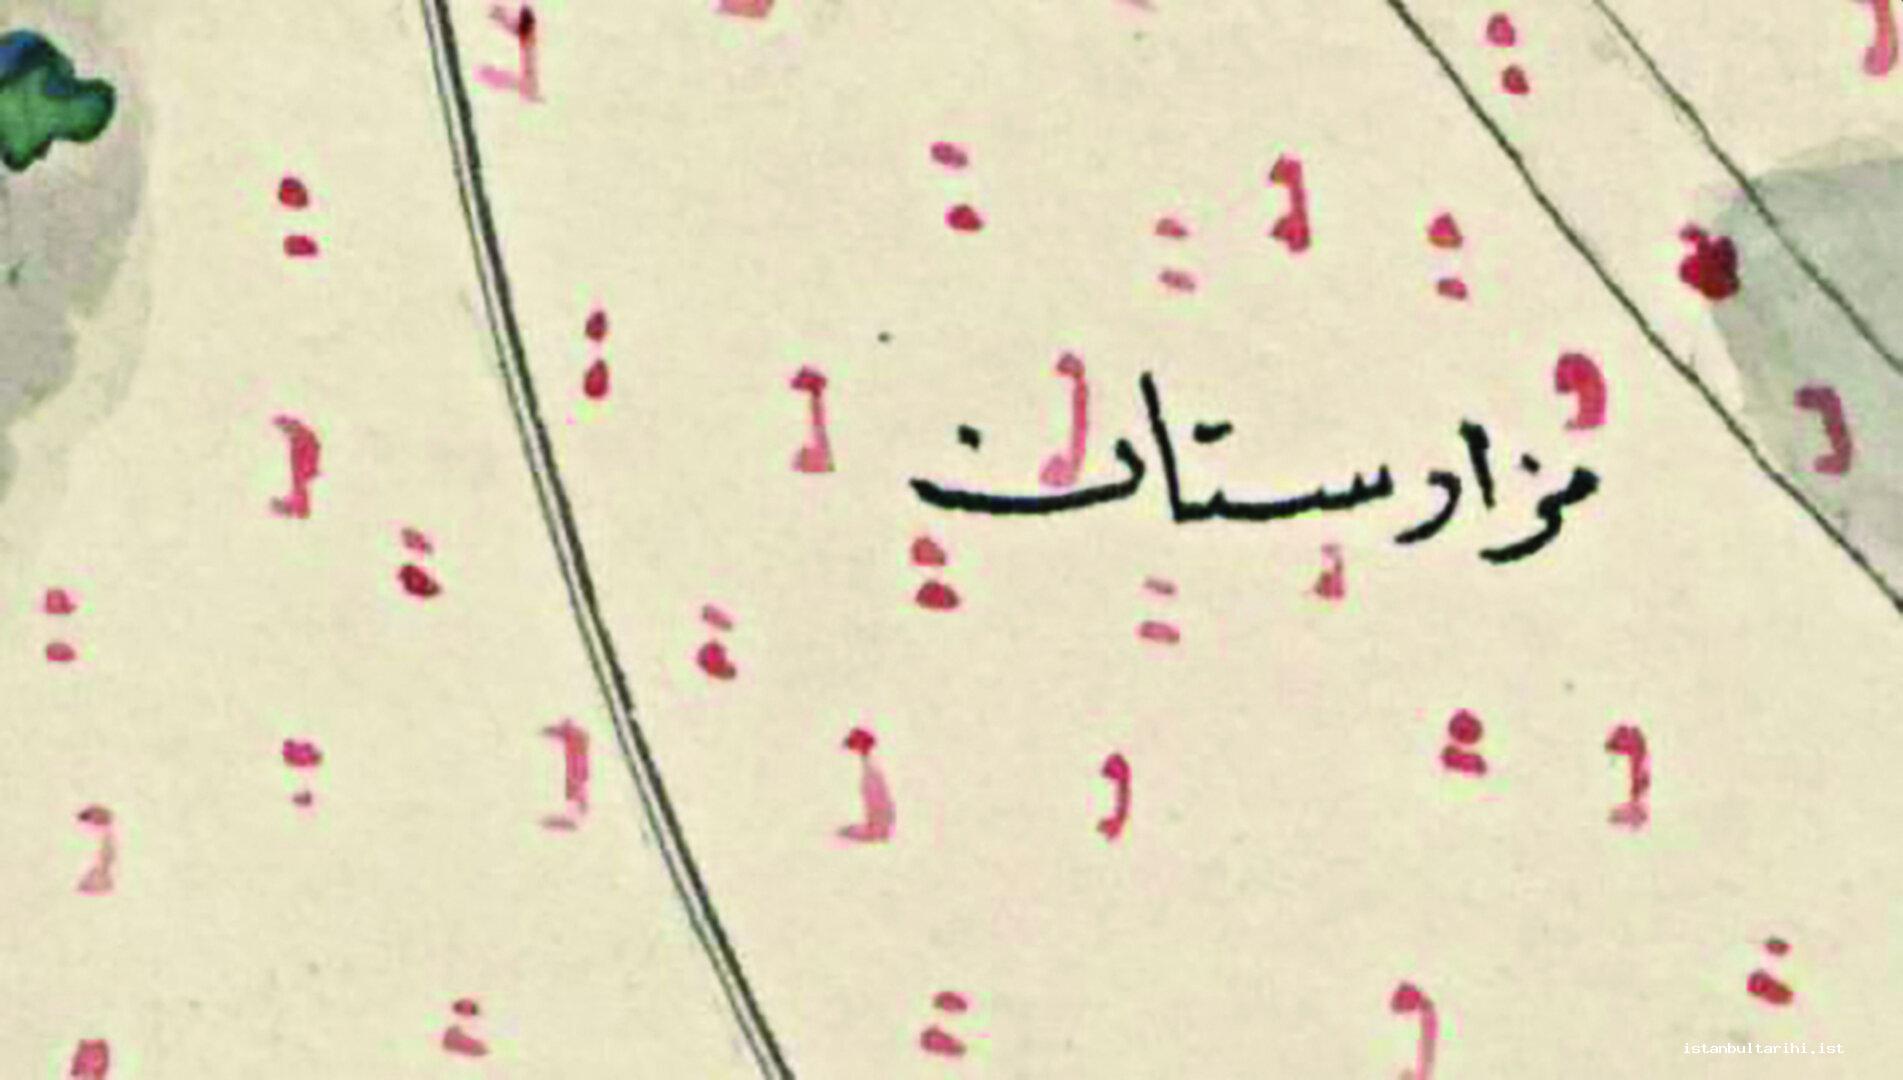 مزارستان
istanbultarihi.ist